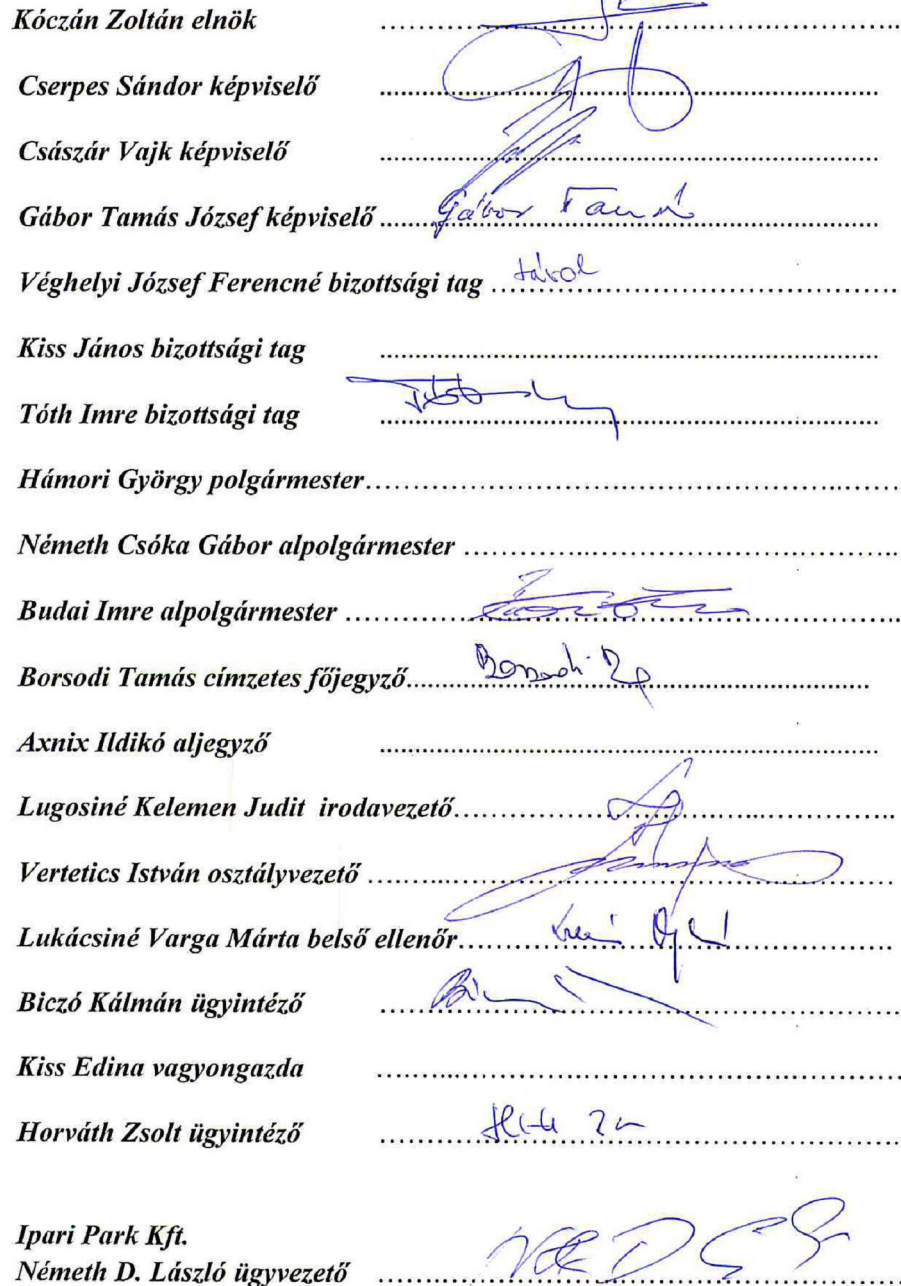 Kóczán Zoltán elnök
Cserpes Sándor képviselő
Császár Vajk képviselő
Gábor Tamás József képviselő Gábor Tamás
Véghelyi József Ferencné bizottsági tag távol
Kiss János bizottsági tag
Tóth Imre bizottsági tag
Hámori György polgármester
Németh Csóka Gábor alpolgármester
Budai Imre alpolgármester
Borsodi Tamás címzetes főjegyző
Axnix Ildikó aljegyző
Lugosiné Kelemen Judit irodavezető
Vertetics István osztályvezető
Lukácsiné Varga Márta belső ellenőr
Biczó Kálmán ügyintéző
Kiss Edina vagyongazda
Horváth Zsolt ügyintéző
Ipari Park Kft.
Németh D. László ügyvezető